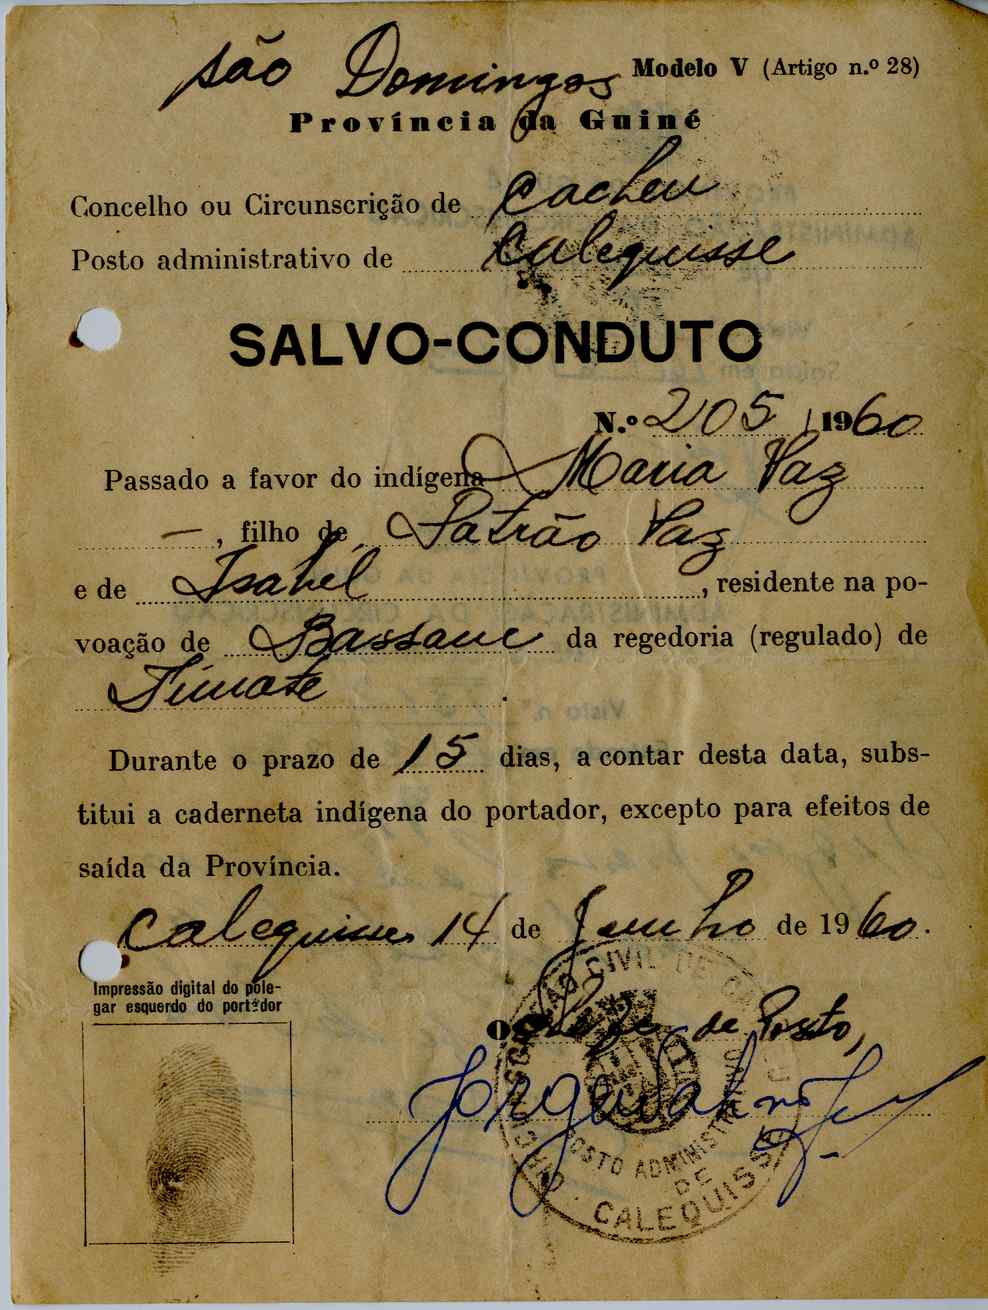 São Domingos
Modelo V (Artigo n.º 28)
Província da Guiné
Concelho ou Circunscrição de Cacheu
Posto administrativo de Calequisse
SALVO-CONDUTO
N.º 205 / 1960
Passado a favor do indígena Maria Vaz
—, filho de Patrão Vaz
e de Isabel, residente na po-
voação de Bassane da regedoria (regulado) de
.
Durante o prazo de 15 dias, a contar desta data, subs-
titui a caderneta indígena do portador, excepto para efeitos de
saída da Província.
Calequisse 14 de Junho de 1960.
Impressão digital do pole-
gar esquerdo do portador
O Chefe de Posto,
Jorge
CIVIL DE
POSTO ADMINISTRATIVO
DE
CALEQUISSE